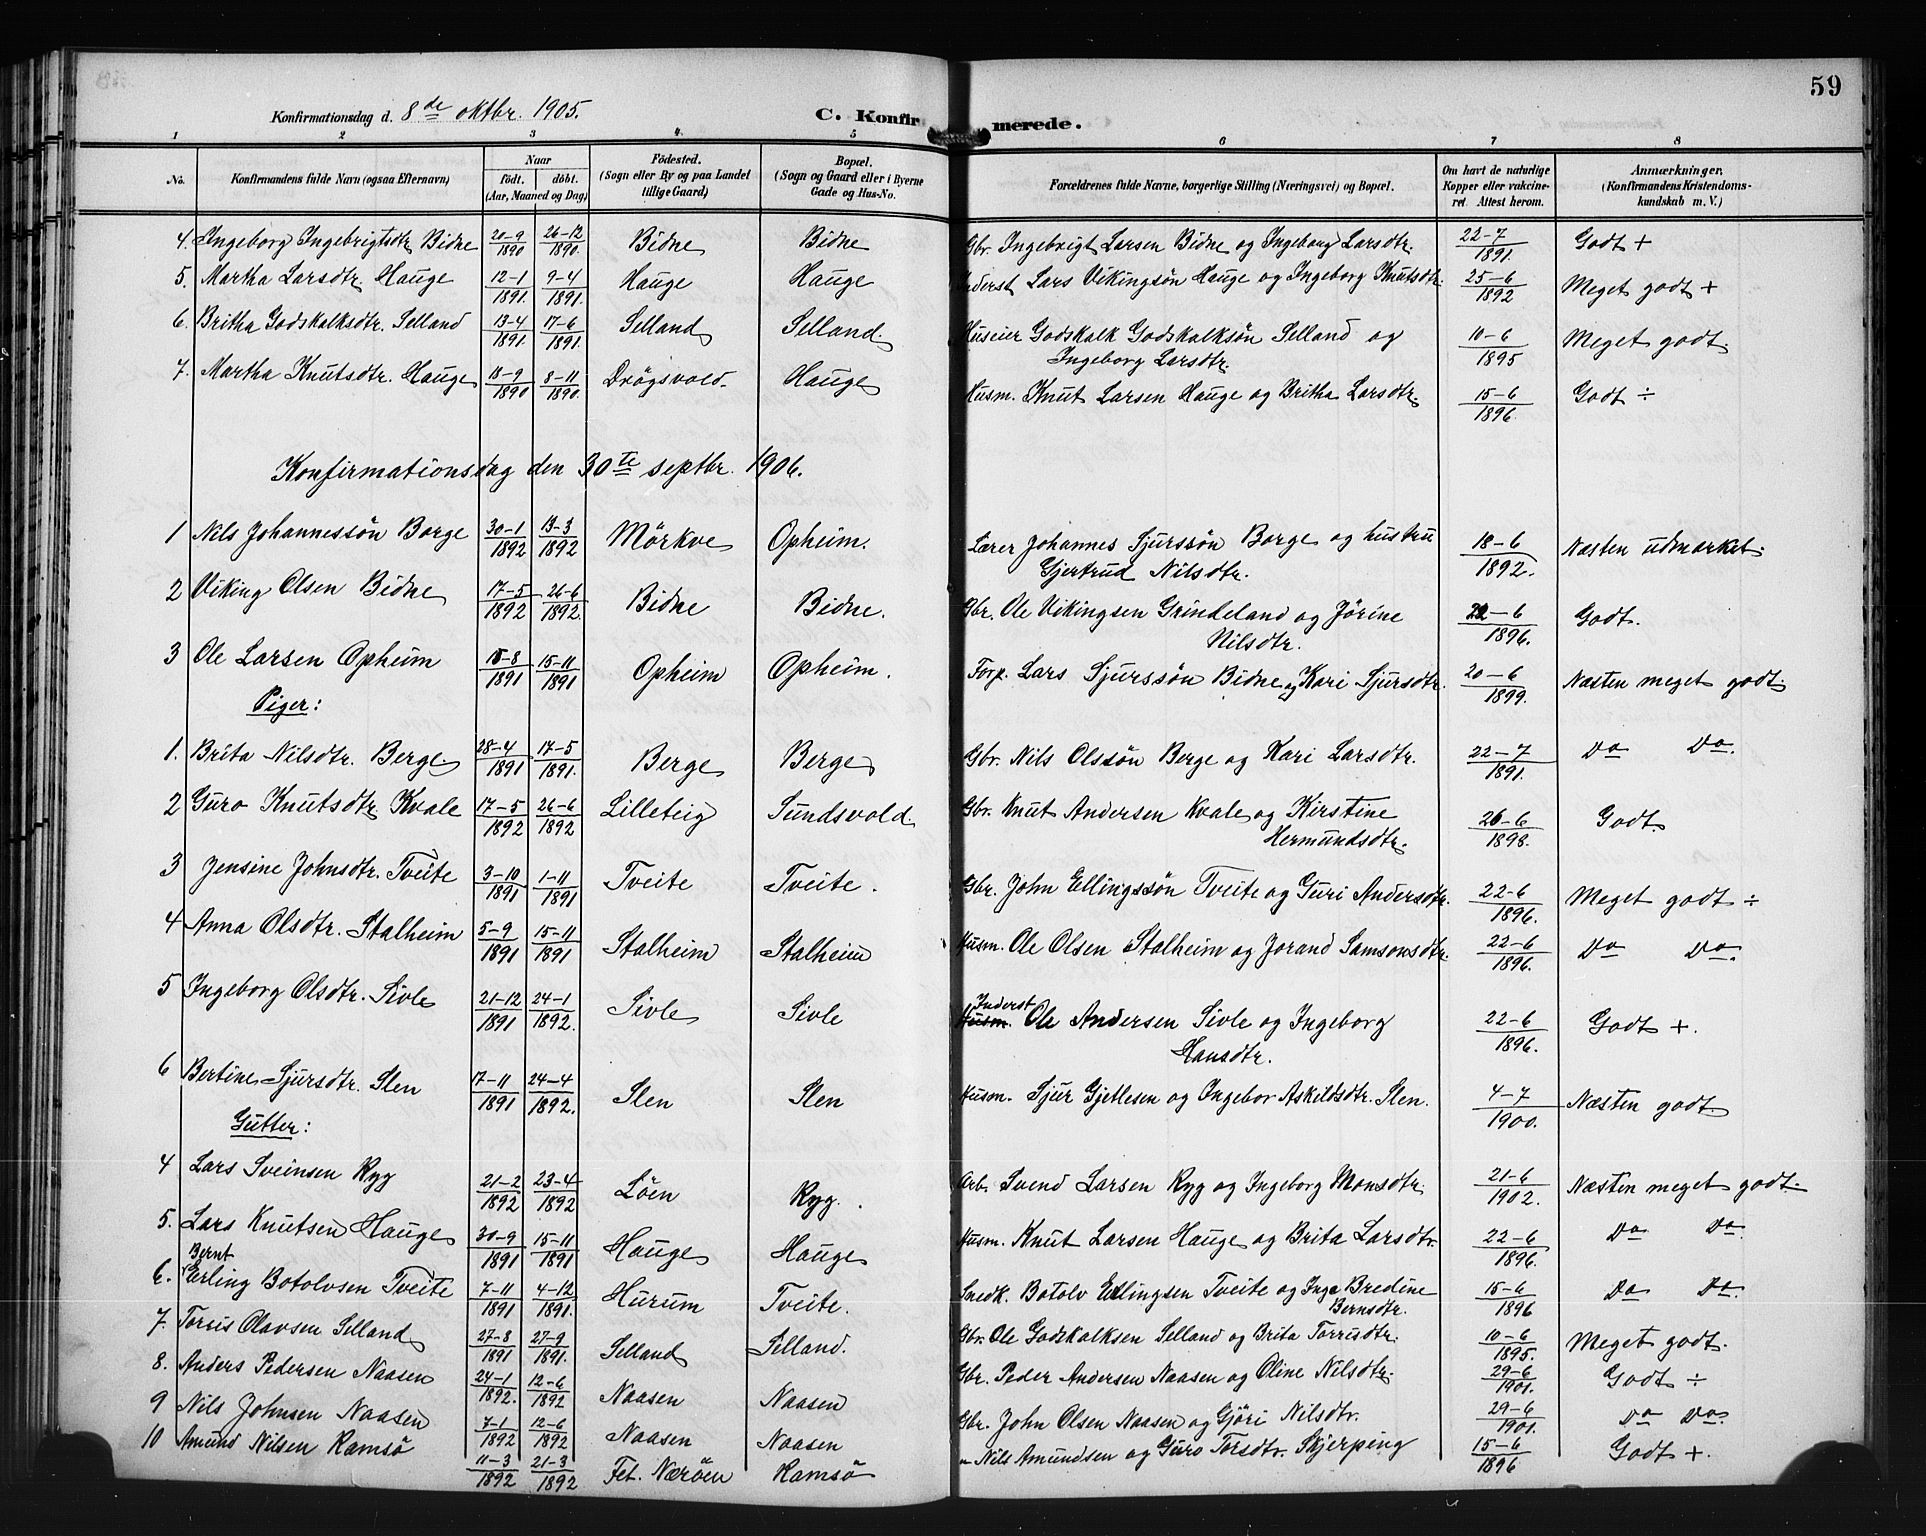 59
Konfirmationsdag d. 8de oktbr. 1905. C. Konfirmerede.
1 2 3 4 5 6 7 8
No. Konfirmandens fulde Navn (ogsaa Efternavn) Naar født. døbt. (Aar, Maaned og Dag) Fødested. (Sogn eller By og paa Landet tillige Gaard) Bopæl. (Sogn og Gaard eller i Byerne Gade og Hus-No. Forældrenes fulde Navne, borgerlige Stilling (Næringsvei) og Bopæl. Om havt de naturlige Kopper eller vakcineret. Attest herom. Anmærkninger, (Konfirmandens Kristendomskundskab m. V.)
4. Ingeborg Ingebrigtsdtr Bidne 20-9 1890 26-12 1890. Bidne Bidne Gbr. Ingebrigt Larsen Bidne og Ingeborg Larsdtr. 22-7 1891. Godt +
5. Martha Larsdtr. Hauge 12-1 1891. 9-4 1891. Hauge Hauge Inderst Lars Vikingsön Hauge og Ingeborg Knutsdtr. 25-6 1892 Meget godt +
6. Britha Godskalksdtr. Selland 13-4 1891. 17-6 1891. Selland Selland. Huseier Godskalk Godskalksön Selland og
Ingeborg Larsdtr. 10-6 1895 Meget godt.
7. Martha Knutsdtr. Hauge 18-9 1890 8-11 1890. Drögsvold Hauge Husm. Knut Larsen Hauge og Britha Larsdtr. 15-6 1896 Godt ÷
Konfirmationsdag den 30te septbr. 1906.
1 Nils Johannessön Borge 30-1 1892 13-3 1892 Mörkve Opheim. Lærer Johannes Sjurssön Borge og hustru
Gjertrud Nilsdtr. 18-6 1892. Næsten udmærket.
2 Viking Olsen Bidne 17-5 1892 26-6 1892. Bidne Bidne. Gbr. Ole Vikingsen Grindeland og Jörine
Nilsdtr. 22-6 1896. Godt.
3 Ole Larsen Opheim 15-8 1891 15-11 1891 Opheim Opheim. Forp. Lars Sjurssön Bidne og Kari Sjursdtr. 20-6 1899. Næsten meget godt.
Piger:
1. Brita Nilsdtr. Berge 28-4 1891 17-5 1891. Berge Berge Gbr. Nils Olssön Berge og Kari Larsdtr. 22-7 1891. Do Do.
2 Guro Knutsdtr Kvale 17-5 1892 26-6 1892 Lilleteig Sundsvold. Gbr. Knut Andersen Kvale og Kirstine
Hermundsdtr. 26-6 1898. Godt
3 Jensine Johnsdtr. Tveite 3-10 1891 1-11 1891 Tveite Tveite. Gbr. John Ellingssön Tveite og Guri Andersdtr. 22-6 1896. Meget godt ÷
4 Anna Olsdtr. Stalheim 5-9 1891 15-11 1891 Stalheim Stalheim Husm. Ole Olsen Stalheim og Jorand Samsonsdtr. 22-6 1896. Do Do.
5 Ingeborg Olsdtr. Sivle 21-12 1891 24-1 1892. Sivle Sivle Inderst
Husm. Ole Andersen Sivle og Ingeborg
Hansdtr. 22-6 1896. Godt +.
6 Bertine Sjursdtr. Slen 17-11 1891 24-4 1892. Slen Slen Husm. Sjur Gjetlesen og Ingebor Askildsdtr. Slen. 4-7 1900. Næsten godt
Gutter:
4 Lars Sveinsen Ryg 21-2 1892 23-4 1892 Löen Ryg. Arb. Svend Larsen Ryg og Ingeborg Monsdtr. 21-6 1902. Næsten meget godt.
5. Lars Knutsen Hauge 30-9 1891 15-11 1891 Hauge Hauge Husm. Knut Larsen Hauge og Brita Larsdtr. 22-6 1896. Do Do.
Bernt
6. Erling Botolvsen Tveite 7-11 1891 4-12 1891. Hurum Tveite. Snedk. Botolv Ellingsen Tveite og Inga Bredine
Berntsdtr. 15-6 1896 Do Do.
7. Torris Olavsen Selland 27-8 1891 27-9 1891. Selland Selland. Gbr. Ole Godskalksen Selland og Brita Torrisdtr. 10-6 1895. Meget godt.
8. Anders Pedersen Naasen 24-1 1892. 12-6 1892 Naasen Naasen Gbr. Peder Andersen Naasen og Oline Nilsdtr. 29-6 1901. Godt ÷
9 Nils Johnsen Naasen 7-1 1892 12-6 1892 Naasen Naasen Gbr. John Olsen Naasen og Gjöri Nilsdtr. 29-6 1901. Do Do.
10 Amund Nilsen Ramsö 11-3 1892 21-3 1892 Fet. Næröen Ramsö " Nils Amundsen og Guro Torsdtr. Skjerping 15-6 1896 Godt +.